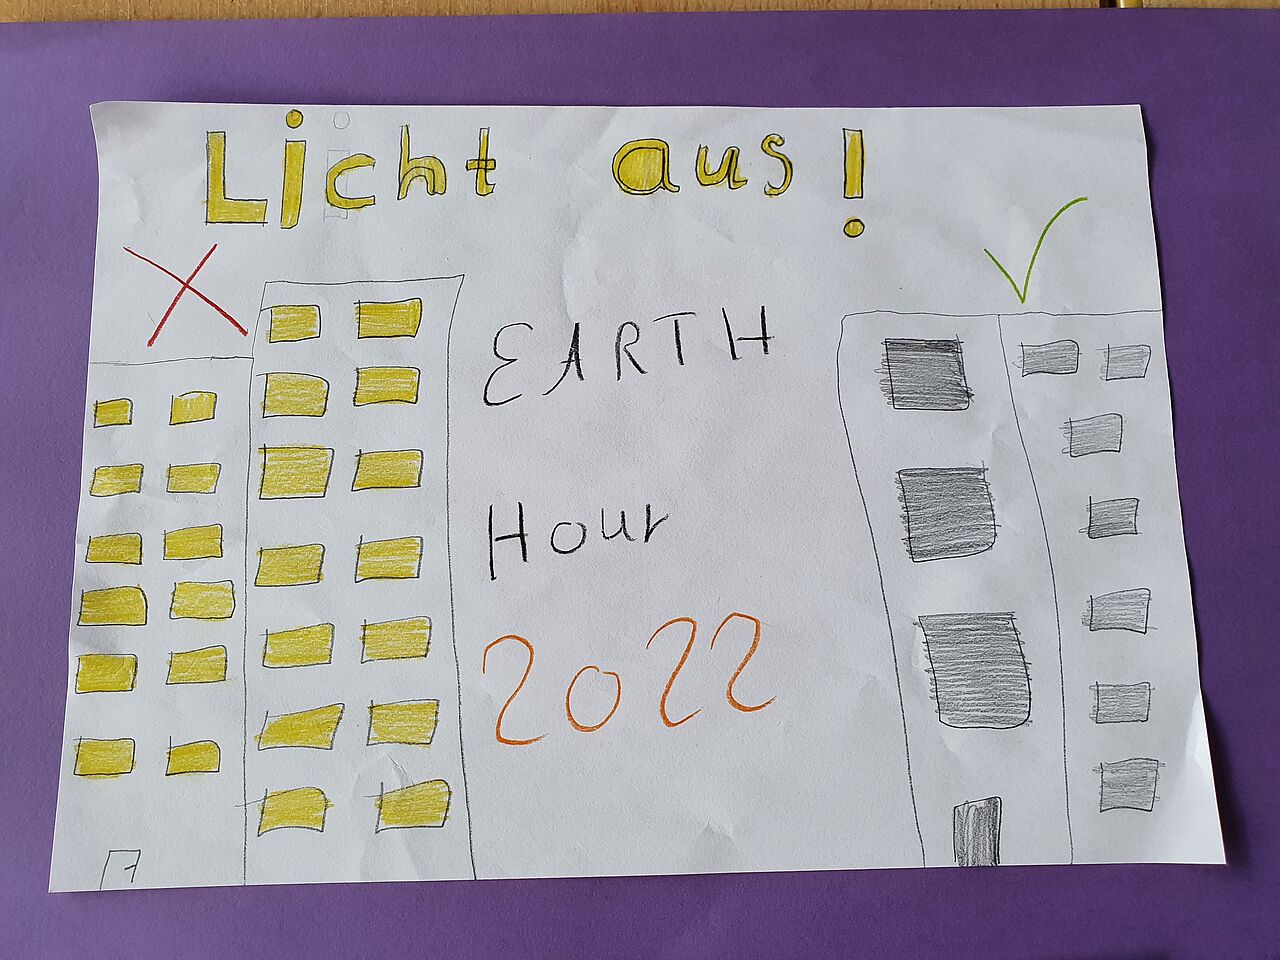 Licht aus!
EARTH
Hour
2022